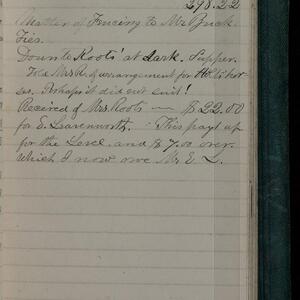 298.22
Matter of Fencing to Mr Buck
Ties.
Down to Roots' at dark. Supper.
Told Mrs R. of arrangement for
ses. Perhaps it did not suit!
Received of Mrs. Roots — $22.00
for E. Leavenworth. This pays up
for the Level and $7.00 over
which I now owe Mr E L.